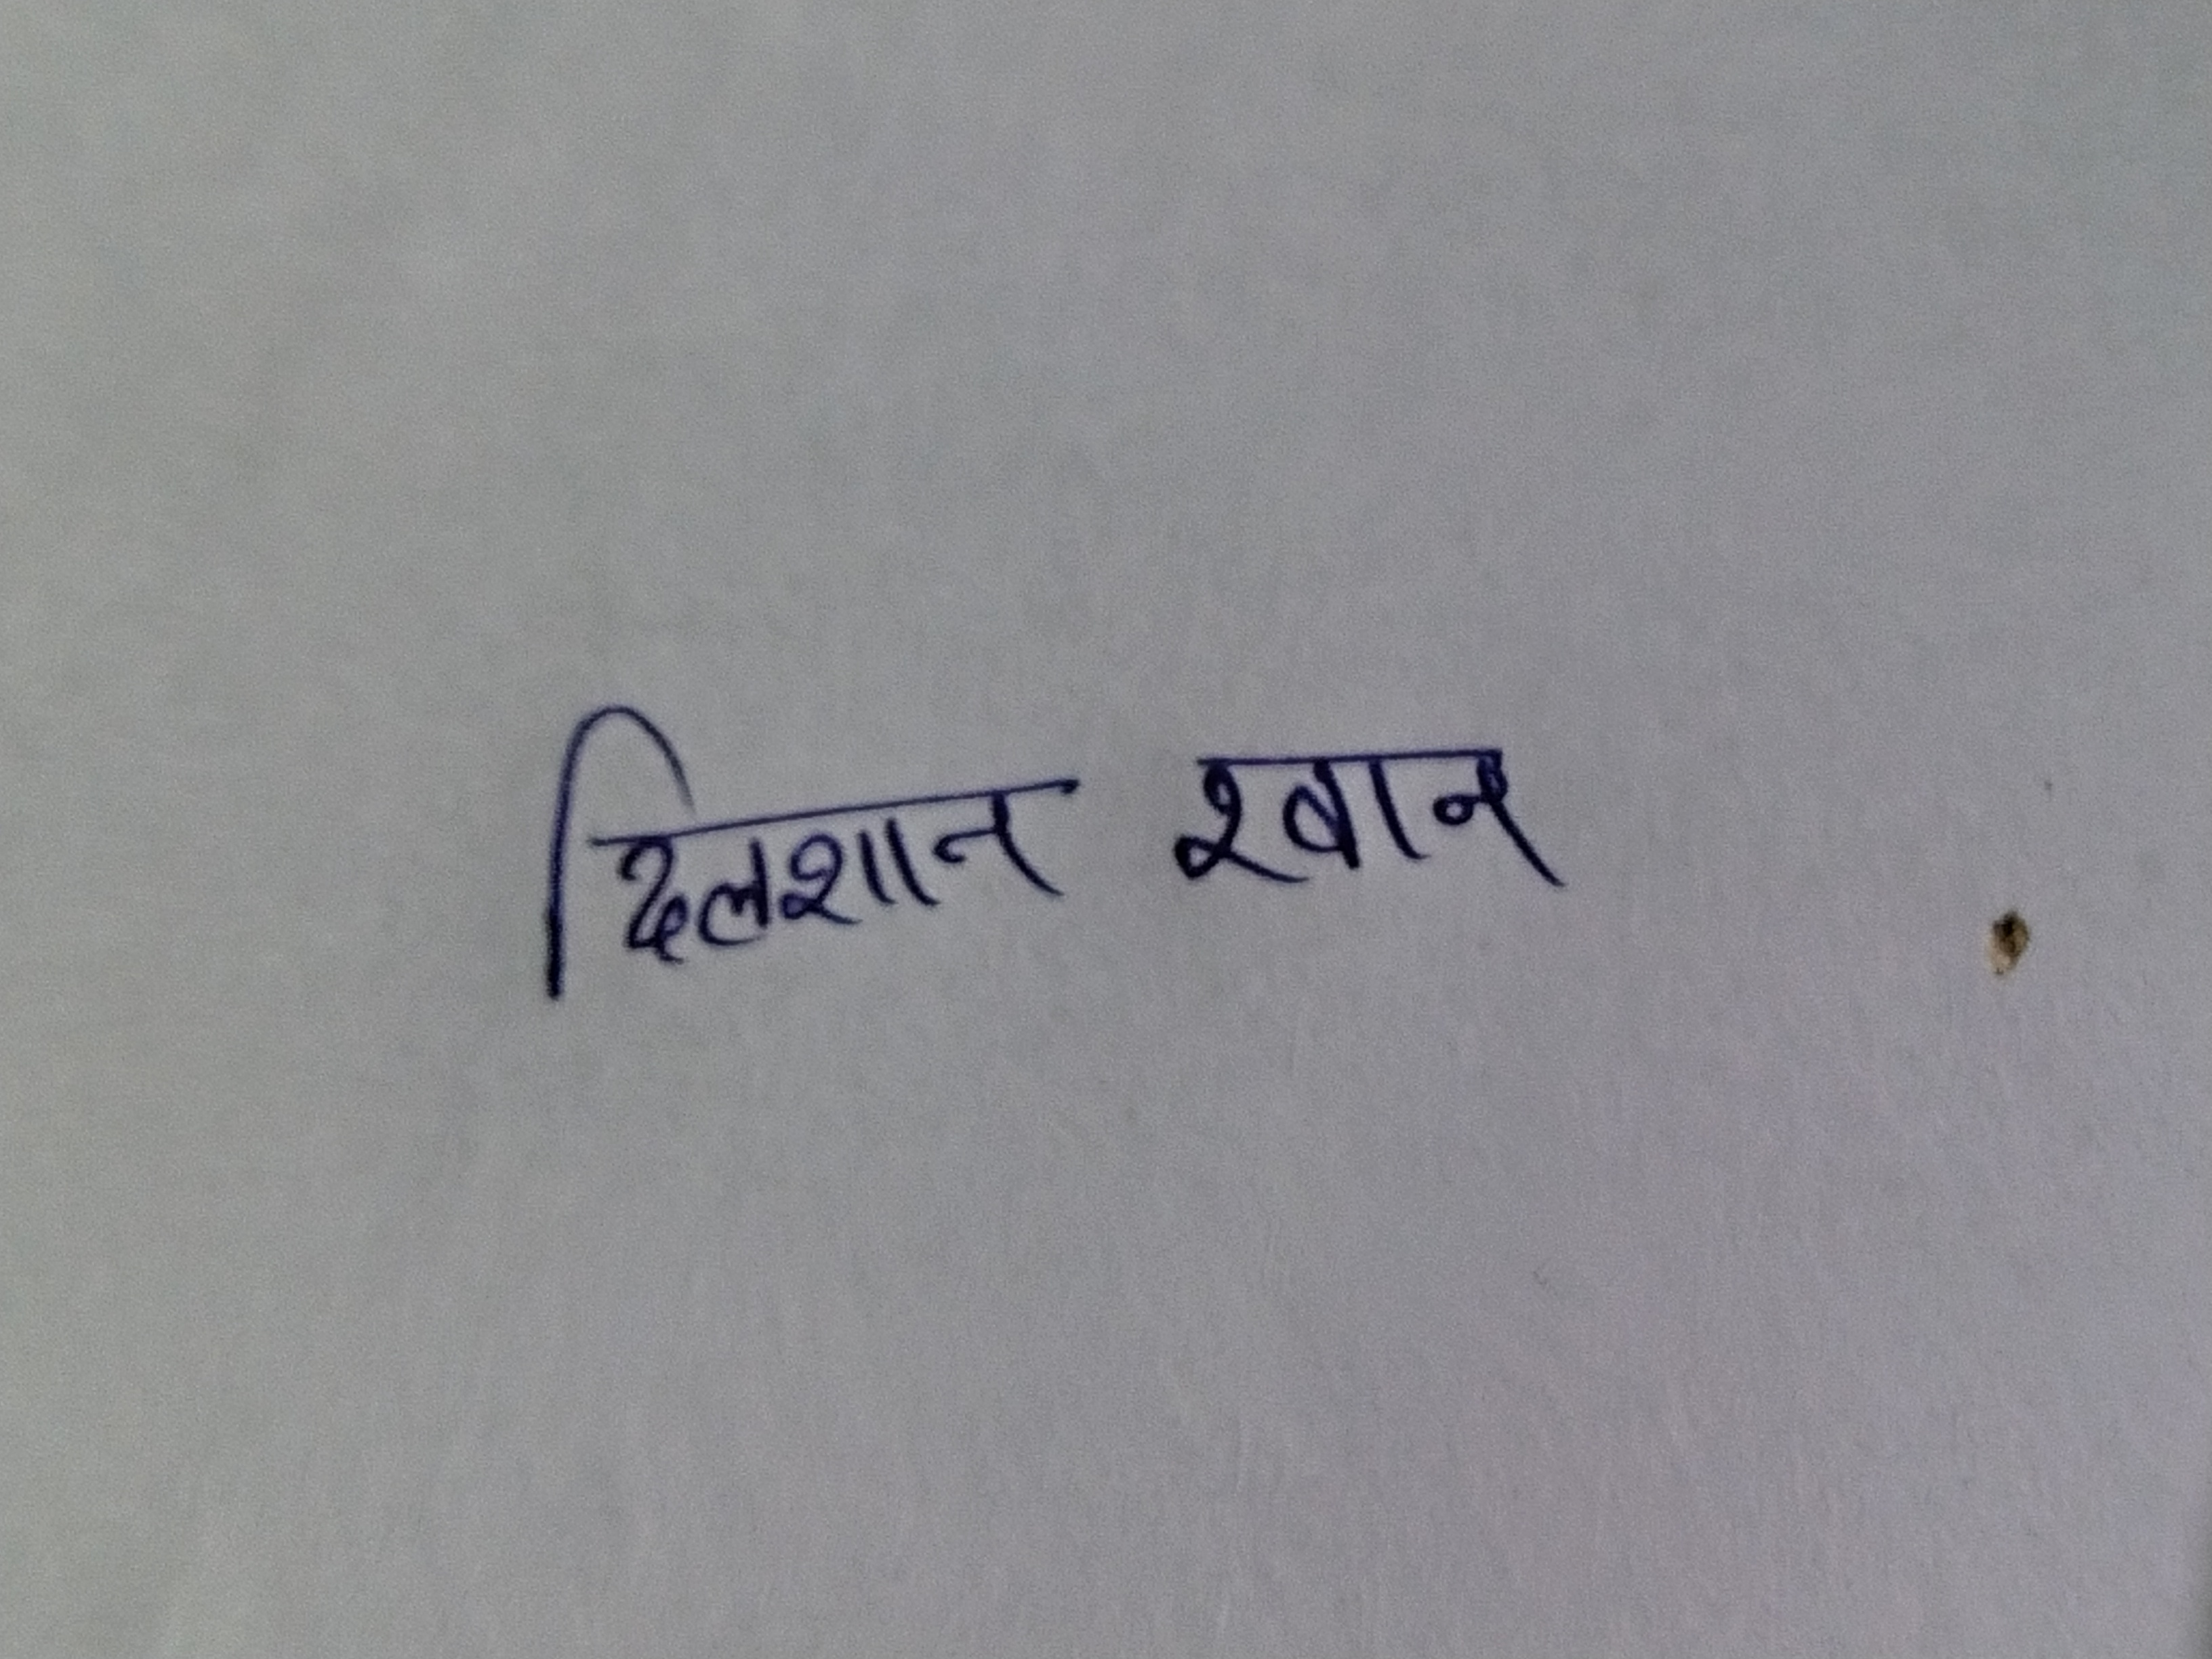 दिलशान खान